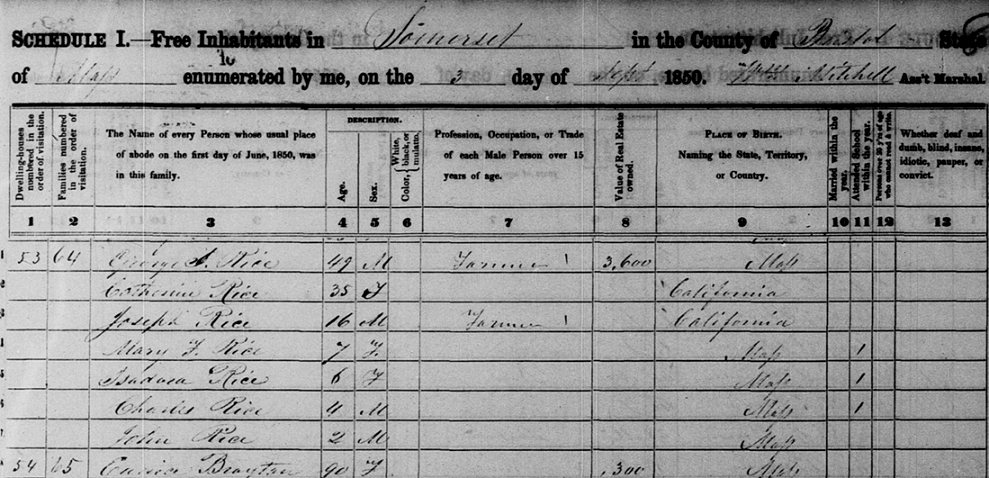 SCHEDULE I.—Free Inhabitants in Somerset in the County of Bristol State
of Mass enumerated by me, on the 3 day of Sept 1850. Mitchell Ass't Marshal.
Dwelling-houses numbered in the order of visitation. Families numbered in the order of visitation. The Name of every Person whose usual place of abode on the first day of June, 1850, was in this family. DESCRIPTION. Age. Sex. Color, White, black, or mulatto. Profession, Occupation, or Trade of each Male Person over 15 years of age. Value of Real Estate owned. PLACE OF BIRTH. Naming the State, Territory, or Country. Married within the year. Attended School within the year. Persons over 20 y'rs of age who cannot read & write. Whether deaf and dumb, blind, insane, idiotic, pauper, or convict.
1 2 3 4 5 6 7 8 9 10 11 12 13
1 53 64 George Rice 49 M Farmer 1 3,600 Mass
2 Catherine Rice 35 F California
3 Joseph Rice 16 M Farmer 1 California
4 Mary F. Rice 7 F Mass 1
5 Isadora Rice 6 F Mass 1
6 Charles Rice 4 M Mass 1
7 John Rice 2 M Mass
8 54 65 Brayton 90 F 300 Mass